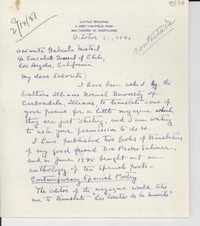 2/14/87
LITTLE WILDING
3 WEST CHATFIELD ROAD
BALTIMORE 10, MARYLAND
contestada
October 21, 1946
Señorita Gabriela Mistral,
c/o Consulate General of Chile,
Los Angeles, California
My dear Señorita:
I have been asked by the
Southern Illinois Normal University of
Carbondale, Illinois to translate some of
your poems for a little magazine which
they are just starting, and I am writing
to ask your permission to do so.
I have published two books of translations
of my good friend Don Pedro Salinas,
and in June 1945 brought out an
anthology of ten Spanish poets -
Contemporary Spanish Poetry
The editor of the magazine would like
me to translate "Los Sonetos de la Muerte"